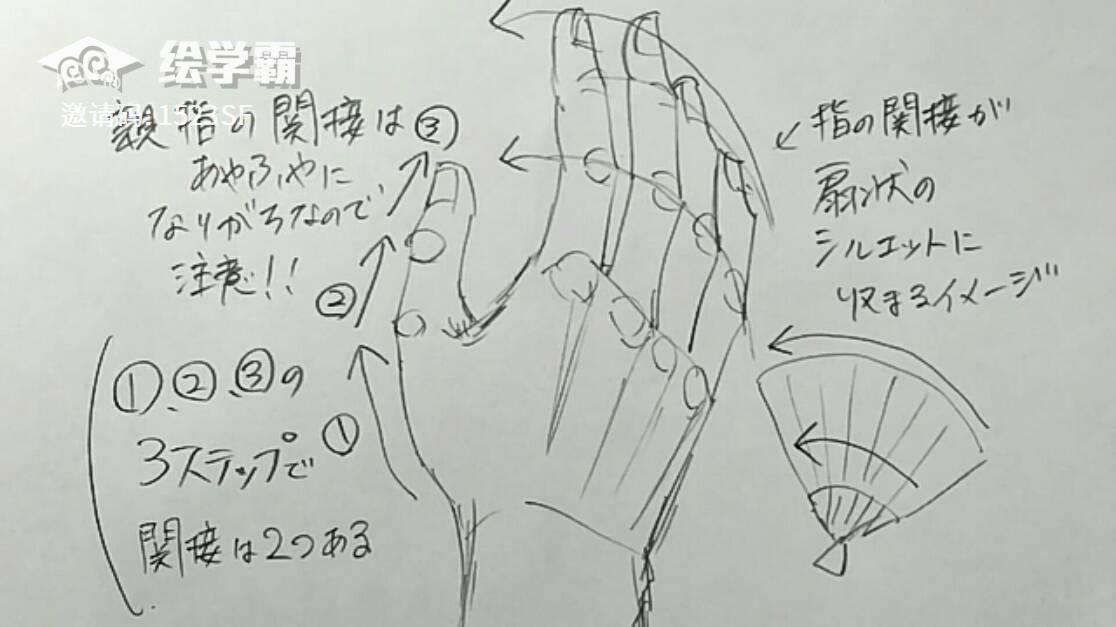 绘学霸
邀请码:1523SF
親指の関接は
あやふやに
なりがちなので、
注意!!
①、②、③の
3ステップで
関接は2つある
③
②
①
指の関接が
扇状の
シルエットに
収まるイメージ